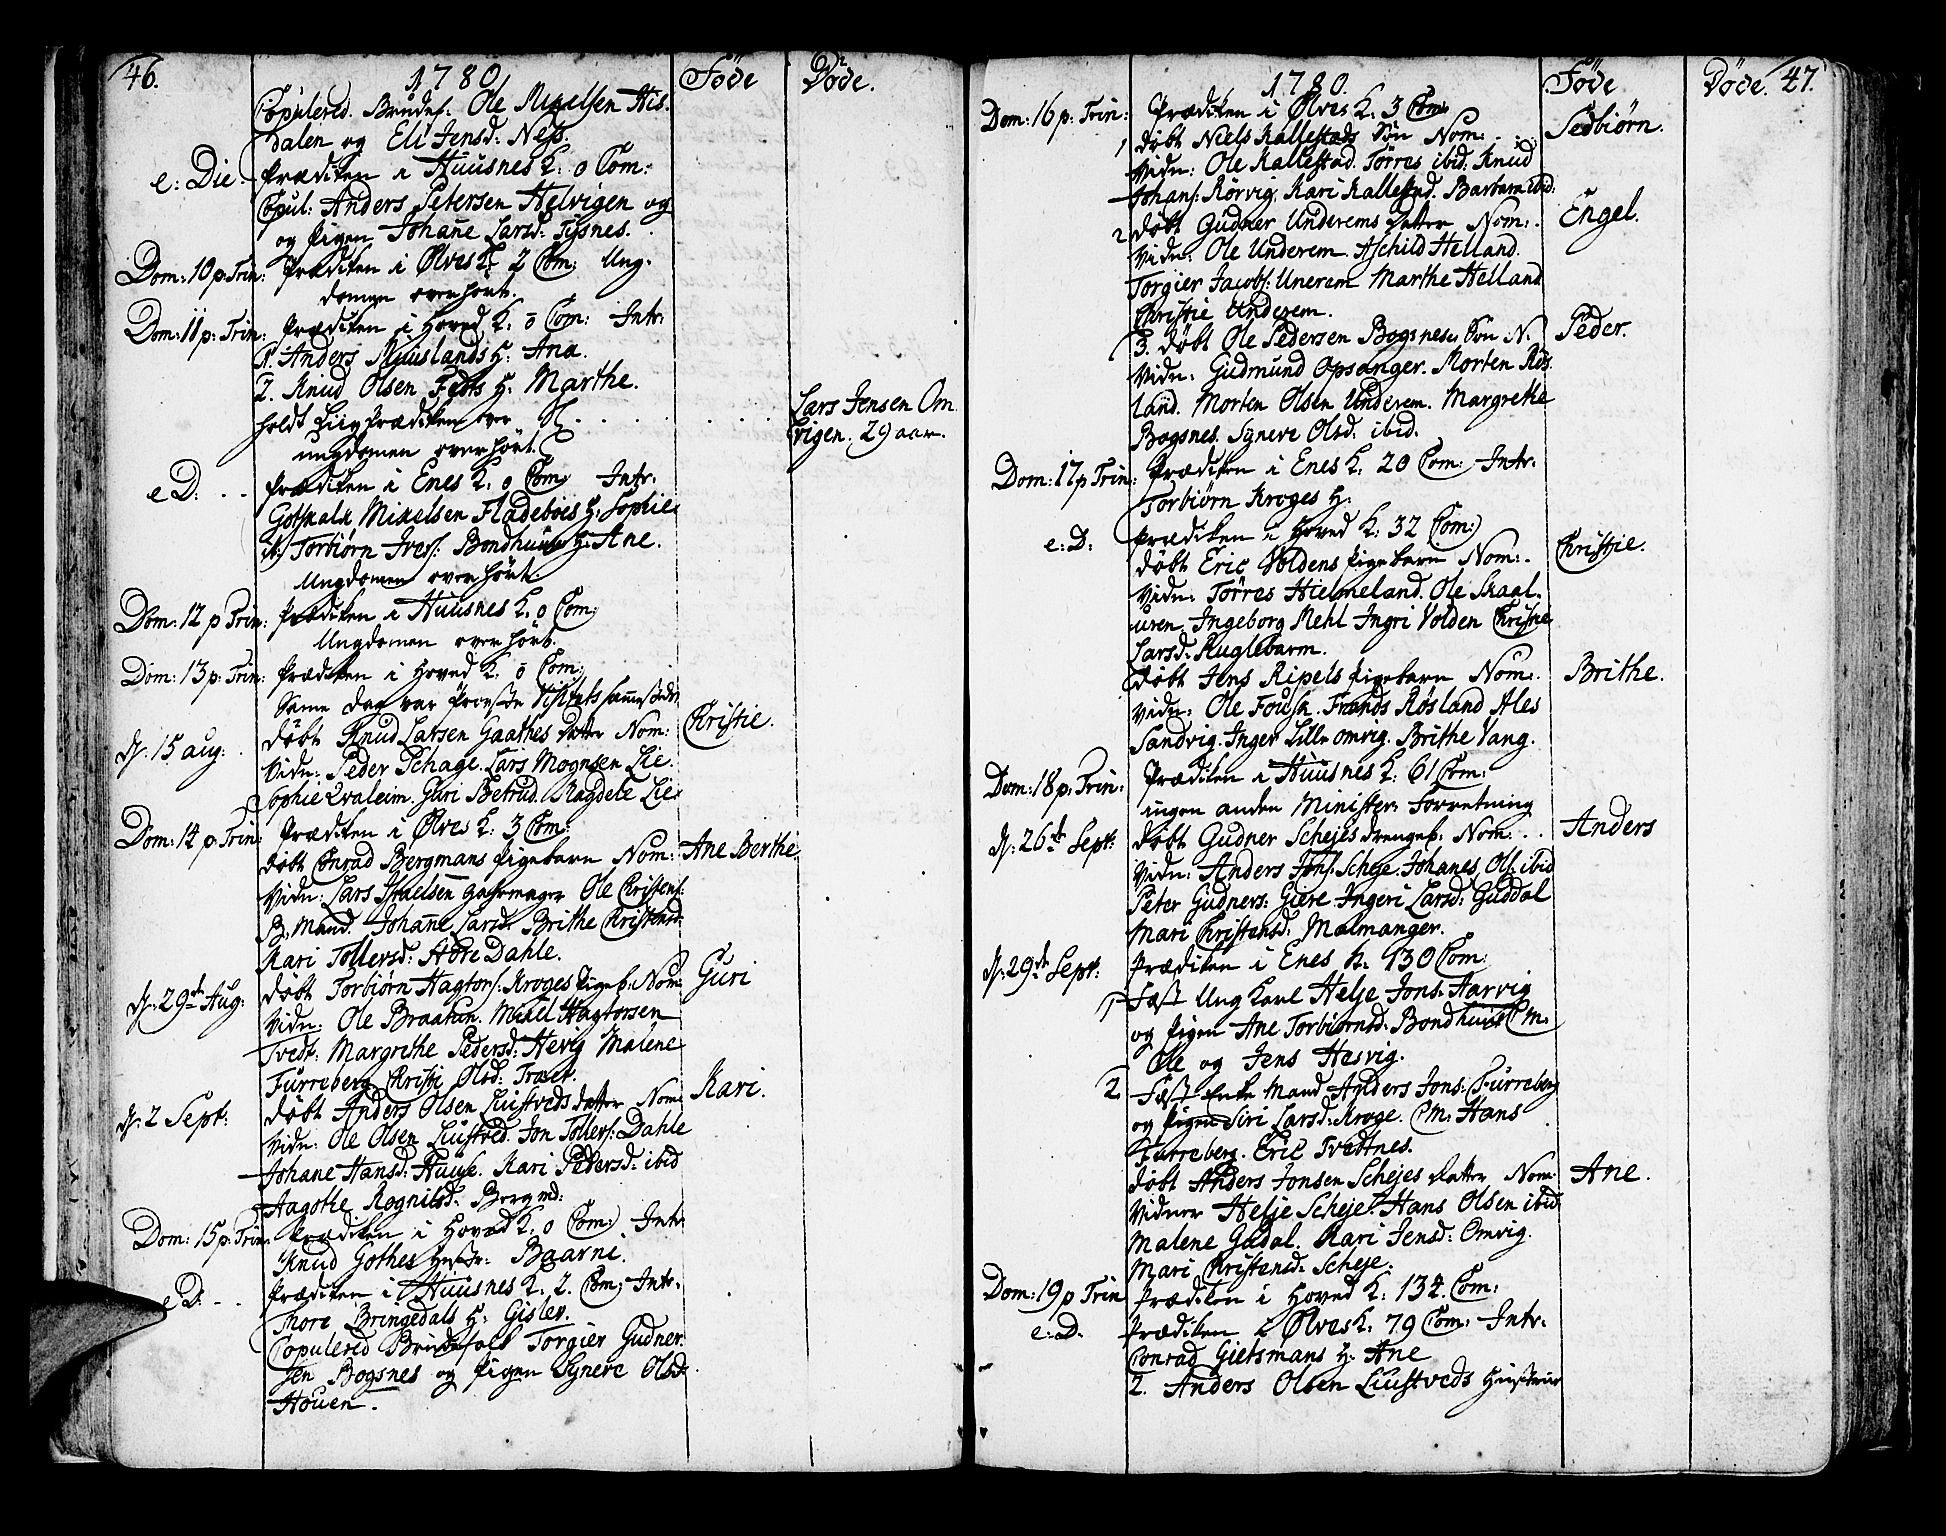 46.
1780
Föde
Döde.
Copulered. Brudef. Ole Mikelsen His.
dalen og Eli Jensd: Ness.
e: Die. Prædiken i Huusnes K: 0 Com:
Copul: Anders Petersen Helvigen og
og Pigen Johane Larsd: Tysnes.
Dom: 10 p Trin: Prædiken i Ølves K: 2 Com: Ung-
domen overhört.
Dom: 11 p: Trin: Prædiken i Hoved K: 0 Com: Intr:
1. Anders Muuslands H: Ana.
2. Knud Olsen Fedts H: Marthe.
holdt Liigprædiken over N. Lars Jensen Om
ungdomen overhört. vigen. 29 aar.
e D: Prædiken i Enes K: 0 Com: Intr:
Gotskalk Mikelsen Fladebøes H: Sophie
it: Torbiørn Ivers: Bondhuus H: Ane.
Ungdomen overhört.
Dom: 12 p Trin: Prædiken i Huusnes K: 0 Com:
Ungdomen overhört.
Dom: 13 p: Trin: Prædiken i Hoved K: 0 Com:
Same dag var Provste Visitats
d. 15 aug: döbt Knud Larsen Gaathes datter Nom: Christie.
Vidn: Peder Schage. Lars Mognsen Lie.
Sophie Qvaleim. Guri Betrud. Ragdele Lie
Dom: 14 p Trin: Prædiken i Ølves K: 3 Com:
döbt Conrad Bergmans Pigebarn Nom: Ane Berthe
Vidn: Lars Israelsen Ole Christens:
B: Mand. Johanne Larsd. Brithe Christensd:
Kari Tollersd: Adre Dahle.
d. 29de Aug: döbt Torbiørn Hagtors: Kroges Pigeb: Nom: Guri
Vidn: Ole Braaten. Mikel Hagtorsen
Tvedt: Margrethe Pedersd: Hevig Malene
Furreberg Christi Olsd: Træet.
d. 2 Sept: döbt Anders Olsen Liustveds datter Nom: Kari.
Vidn: Ole Olsen Liustved. Jon Tollers: Dahle
Johane Hansd: Huuse. Kari Pedersd: ibid
Aagothe Rognilsd: Bergmd:
Dom: 15 p: Trin: Prædiken i Hoved K: 0 Com: Intr:
Knud Gothes Hustr: Baarni.
e D: Prædiken i Huusnes K: 2. Com: Intr:
Thore Bringedals H: Gisler.
Copulered Brudefolk Torgier Gudner
sen Bogsnes og Pigen Synere Olsd:
Houen.
1780.
Föde
Döde. 47.
Dom: 16 p: Trin: Prædiken i Ølves K: 3 Com:
1 döbt Niels Kallestads Sön Nom: Sedbiørn.
Vidn: Ole Kallestad. Törres ibid. Knud
Johans: Rörvig. Kari Kallestad. Barbara ibid:
2 döbt Gudner Underems datter Nom: Engel.
Vidn: Ole Underem. Aschild Helland.
Torgier Jacobs: Unerem Marthe Helland
Christie Underem.
3. döbt Ole Pedersen Bogsnes Sön N. Peder.
Vidn: Gudmund Opsanger. Morten Røs
land. Morten Olsen Underem. Margrethe
Bogsnes. Synere Olsd: ibid.
Dom: 17 p Trin: Prædiken i Enes K: 20 Com: Intr:
Torbiørn Kroges H:
e: D: Prædiken i Hoved K: 32 Com:
döbt Eric Voldens Pigebarn Nom: Christie.
Vidn: Törres Hielmeland. Ole Skaal.
uren Ingeborg Mehl Ingri Volden Christie
Larsd: Kuglebarm.
döbt Jens Ripels Pigebarn Nom: Brithe.
Vidn: Ole Fousk. Frands Røsland Ales
Sandvig. Inger Lille omvig. Brithe Vang.
Dom: 18 p: Trin: Prædiken i Huusnes K: 61 Com:
ingen anden Minister: Forretning
d: 26de Sept: döbt Gudner Schejes drengeb: Nom: Anders
Vidn: Anders Jons: Scheje. Johanes Ols: ibid
Peter Gudners: Giere Ingeri Larsd: Guddal
Mari Christensd: Malmanger.
d: 29de Sept: Prædiken i Enes K. 130 Com:
1 Fæst Ung Karl Helje Jons: Aarvig
og Pigen Ane Torbiørnsd: Bondhuus Cm:
Ole og Jens Hesvig.
2 Fæst Enke Mand Anders Jons: Furreberg
og Pigen Siri Larsd: Kroge. Cm: Hans
Furreberg. Eric Tvedtnes.
döbt Anders Jonsen Schejes datter Nom: Ane.
Vidner Helje Scheje. Hans Olsen ibid
Malene Gadal. Kari Jensd: Omvig.
Mari Christensd: Scheje.
Dom: 19 p Trin Prædiken i Hoved K: 134. Com:
e: D. Prædiken i Ølves K: 79 Com: Intr:
Conrad Gietsmans H: Ane
2. Anders Olsen Liustveds Hustrue